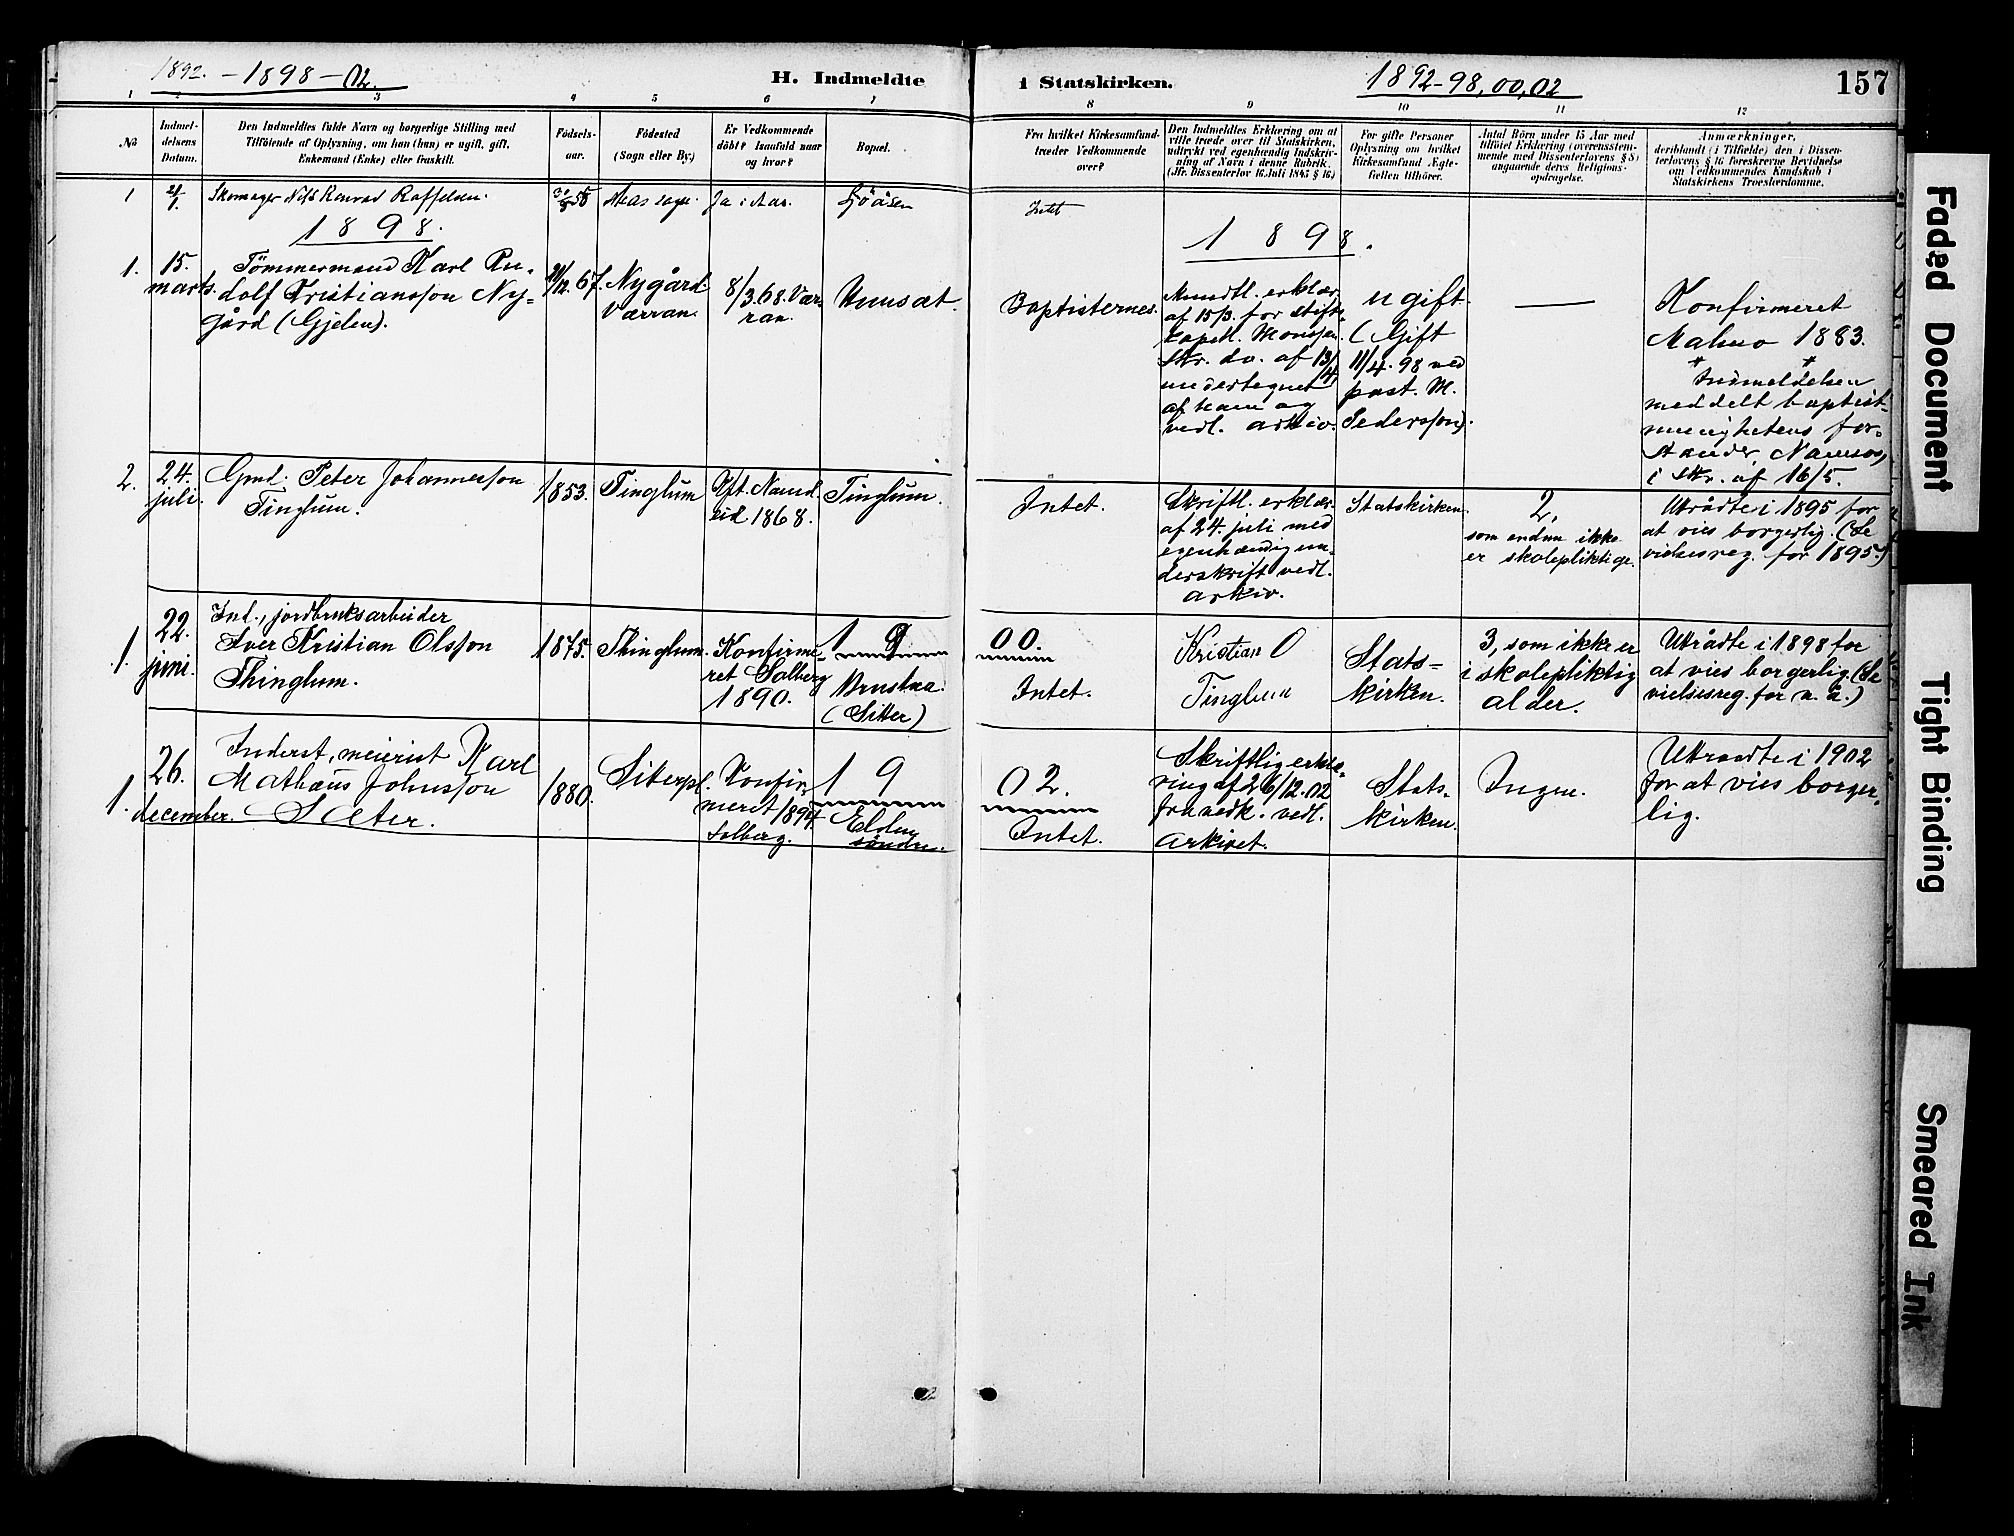 1892. - 1898 - 02.
H. Indmeldte
i Statskirken.
1892-98, 00, 02
157
1
2
3
4
5
6
7
8
9
10
11
12
No
Indmel-
delsens
Datum.
Den Indmeldtes fulde Navn og borgerlige Stilling med
Tilføiende af Oplysning, om han (hun) er ugift, gift,
Enkemand (Enke) eller fraskilt.
Fødsels-
aar.
Fødested
(Sogn eller By.)
Er Vedkommende
døbt? Isaafald naar
og hvor?
Bopæl.
Fra hvilket Kirkesamfund
træder Vedkommende
over?
Den Indmeldtes Erklæring om at
ville træde over til Statskirken,
udtrykt ved egenhændig Indskriv-
ning af Navn i denne Rubrik.
(Jfr. Dissenterlov 16 Juli 1845 § 16)
For gifte Personer
Oplysning om hvilket
Kirkesamfund Ægte-
fællen tilhører.
Antal Børn under 15 Aar med
tilføiet Erklæring (overensstem-
mende med Dissenterlovens § 8)
angaaende deres Religions-
opdragelse.
Anmærkninger,
deriblandt (i Tilfælde) den i Dissen-
terlovens § 16 foreskrevne Bevidnelse
om Vedkommendes Kundskab i
Statskirkens Troeslærdomme.
1
Skomager Nils Konrad Roffelsen.
Aas sogn.
Ja i Aas.
Sjöåsen
Intet
1898.
1898.
1.
15.
marts.
Tömmermand Karl Ru-
dolf Kristiansson Ny-
gård (Gjelen).
21/12. 67.
Nygård
Værran.
8/3.68. Vær-
ran.
Baptisternes.
Mundtl. erklær.
af 15/3. for stift-
kapell.
Skr. do. af 13/4
undertegnet
af ham og
vedl. arkiv.
ugift.
(Gift
11/4. 98 ved
past. M.
Pedersson).
Konfirmeret
Malmo 1883.
Indmeldelsen
meddelt baptist-
menighetens for-
stander, Namsos,
i skr. af 16/5.
2.
24.
juli.
Gmd. Peter Johannesson
Tinglum.
1853.
Tinglum
1868.
Tinglum.
Intet.
Skriftl. erklær.
af 24. juli med
egenhændig un-
derskrift vedl.
arkiv.
Statskirken.
2,
som endnu ikke
er skolepliktige.
Utrådte i 1895 for
at vies borgerlig. (Se
vielsesreg. for 1895.)
1.
22.
juni.
Ind., jordbruksarbeider
Iver Kristian Olsson
Thinglum.
1875.
Thinglum.
Konfirme-
ret Solberg
1890.
19
(Sitter)
00.
Intet.
Kristian O
Tinglum
Stats-
kirken.
3, som ikke er
i skolepliktig
alder.
Utrådte i 1898 for
at vies borgerlig. (Se
vielsesreg. for n. å.)
1.
26.
december.
Inderst, meierist Karl
Mathæus Johnsson
Sæter.
1880.
Siterpl.
Konfir-
meret 1894
Solberg.
19
Elden
söndre.
02.
Intet.
Skriftlig erklæ-
ring af 26/12.02
fra vedk. vedl.
arkivet.
Stats-
kirken.
Ingen.
Utraadte i 1902
for at vies borger-
lig.
Faded Document
Tight Binding
Smeared Ink